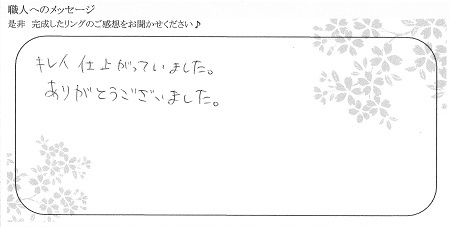 職人へのメッセージ
是非 完成したリングのご感想をお聞かせください♪
キレイ仕上がっていました。
ありがとうございました。